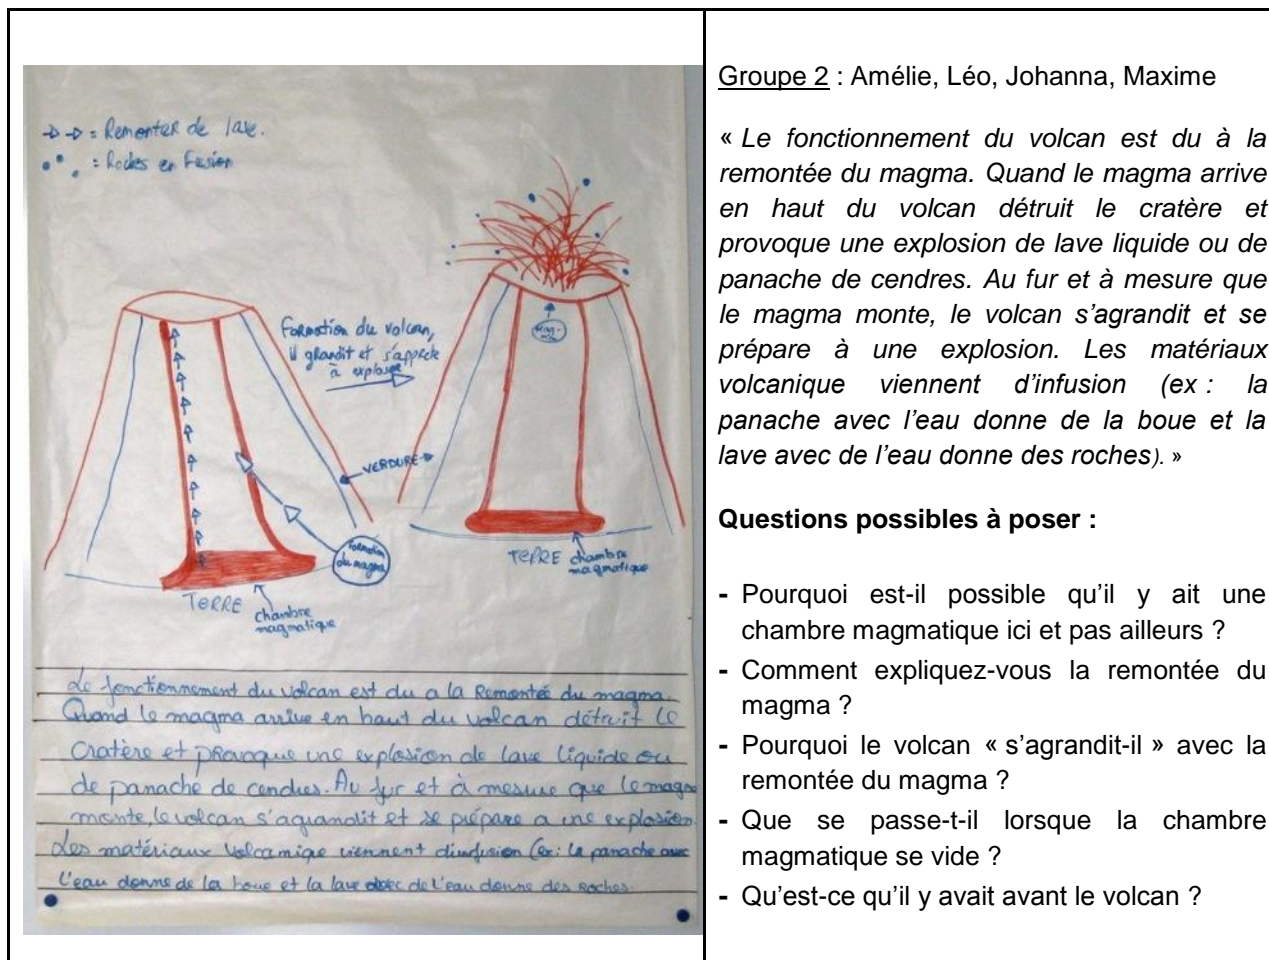 → → = Remonter de lave.
• • . = Roches en Fusion
Formation du volcan,
il grandit et s'apprete
à exploser
Mag-
ma
VERDURE
Formation
du magma
TERRE
chambre
magmatique
TERRE
chambre
magmatique
Le fonctionnement du volcan est du a la Remontée du magma.
Quand le magma arrive en haut du volcan détruit le
cratère et provoque une explosion de lave liquide ou
de panache de cendres. Au fur et à mesure que le magma
monte, le volcan s'agrandit et se prépare a une explosion.
Les matériaux volcanique viennent d'infusion (ex: la panache avec
l'eau donne de la boue et la lave avec de l'eau donne des roches.
Groupe 2 : Amélie, Léo, Johanna, Maxime
« Le fonctionnement du volcan est du à la
remontée du magma. Quand le magma arrive
en haut du volcan détruit le cratère et
provoque une explosion de lave liquide ou de
panache de cendres. Au fur et à mesure que
le magma monte, le volcan s'agrandit et se
prépare à une explosion. Les matériaux
volcanique viennent d'infusion (ex : la
panache avec l'eau donne de la boue et la
lave avec de l'eau donne des roches). »
Questions possibles à poser :
- Pourquoi est-il possible qu'il y ait une
chambre magmatique ici et pas ailleurs ?
- Comment expliquez-vous la remontée du
magma ?
- Pourquoi le volcan « s'agrandit-il » avec la
remontée du magma ?
- Que se passe-t-il lorsque la chambre
magmatique se vide ?
- Qu'est-ce qu'il y avait avant le volcan ?